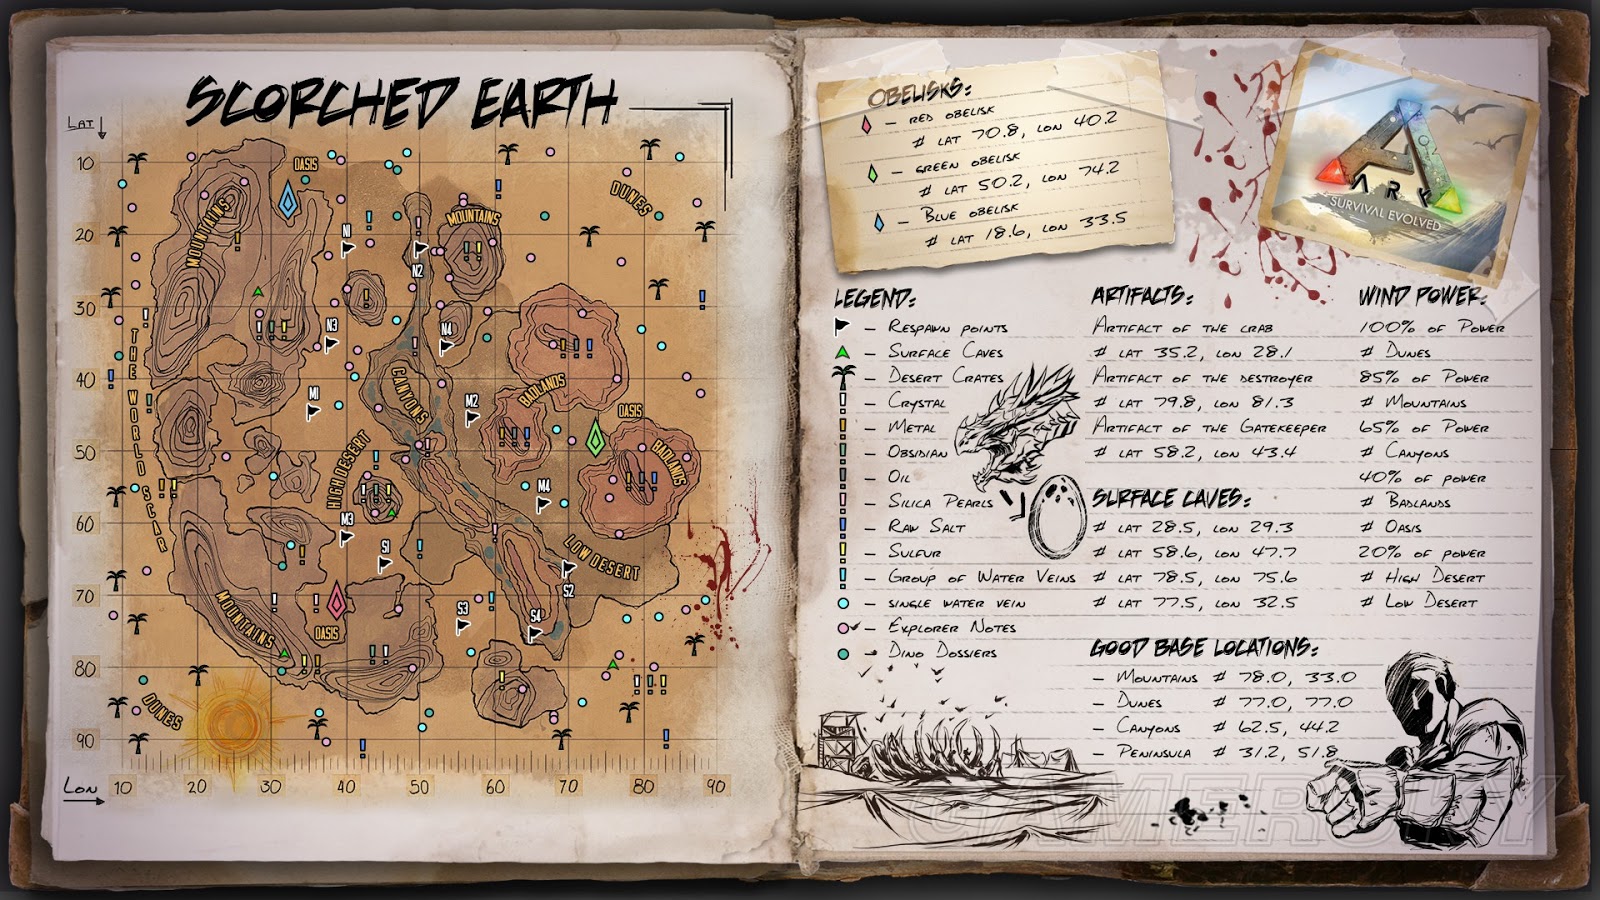 SCORCHED EARTH
LAT
10
20
30
40
50
60
70
80
90
LON
10 20 30 40 50 60 70 80 90
OASIS
MOUNTAINS
MOUNTAINS
DUNES
N1
N2
N3
N4
THE WORLD SCAR
CANYONS
BADLANDS
M1
M2
OASIS
BADLANDS
HIGH DESERT
M4
M3
S1
LOW DESERT
S2
MOUNTAINS
OASIS
S3
S4
DUNES
OBELISKS:
– RED OBELISK
# LAT 70.8, LON 40.2
– GREEN OBELISK
# LAT 50.2, LON 74.2
– BLUE OBELISK
# LAT 18.6, LON 33.5
ARK
SURVIVAL EVOLVED
LEGEND:
– RESPAWN POINTS
– SURFACE CAVES
– DESERT CRATES
– CRYSTAL
– METAL
– OBSIDIAN
– OIL
– SILICA PEARLS
– RAW SALT
– SULFUR
– GROUP OF WATER VEINS
– SINGLE WATER VEIN
– EXPLORER NOTES
– DINO DOSSIERS
ARTIFACTS:
ARTIFACT OF THE CRAB
# LAT 35.2, LON 28.1
ARTIFACT OF THE DESTROYER
# LAT 79.8, LON 81.3
ARTIFACT OF THE GATEKEEPER
# LAT 58.2, LON 43.4
SURFACE CAVES:
# LAT 28.5, LON 29.3
# LAT 58.6, LON 47.7
# LAT 78.5, LON 75.6
# LAT 77.5, LON 32.5
WIND POWER:
100% OF POWER
# DUNES
85% OF POWER
# MOUNTAINS
65% OF POWER
# CANYONS
40% OF POWER
# BADLANDS
# OASIS
20% OF POWER
# HIGH DESERT
# LOW DESERT
GOOD BASE LOCATIONS:
– MOUNTAINS # 78.0, 33.0
– DUNES # 77.0, 77.0
– CANYONS # 62.5, 44.2
– PENINSULA # 31.2, 51.8